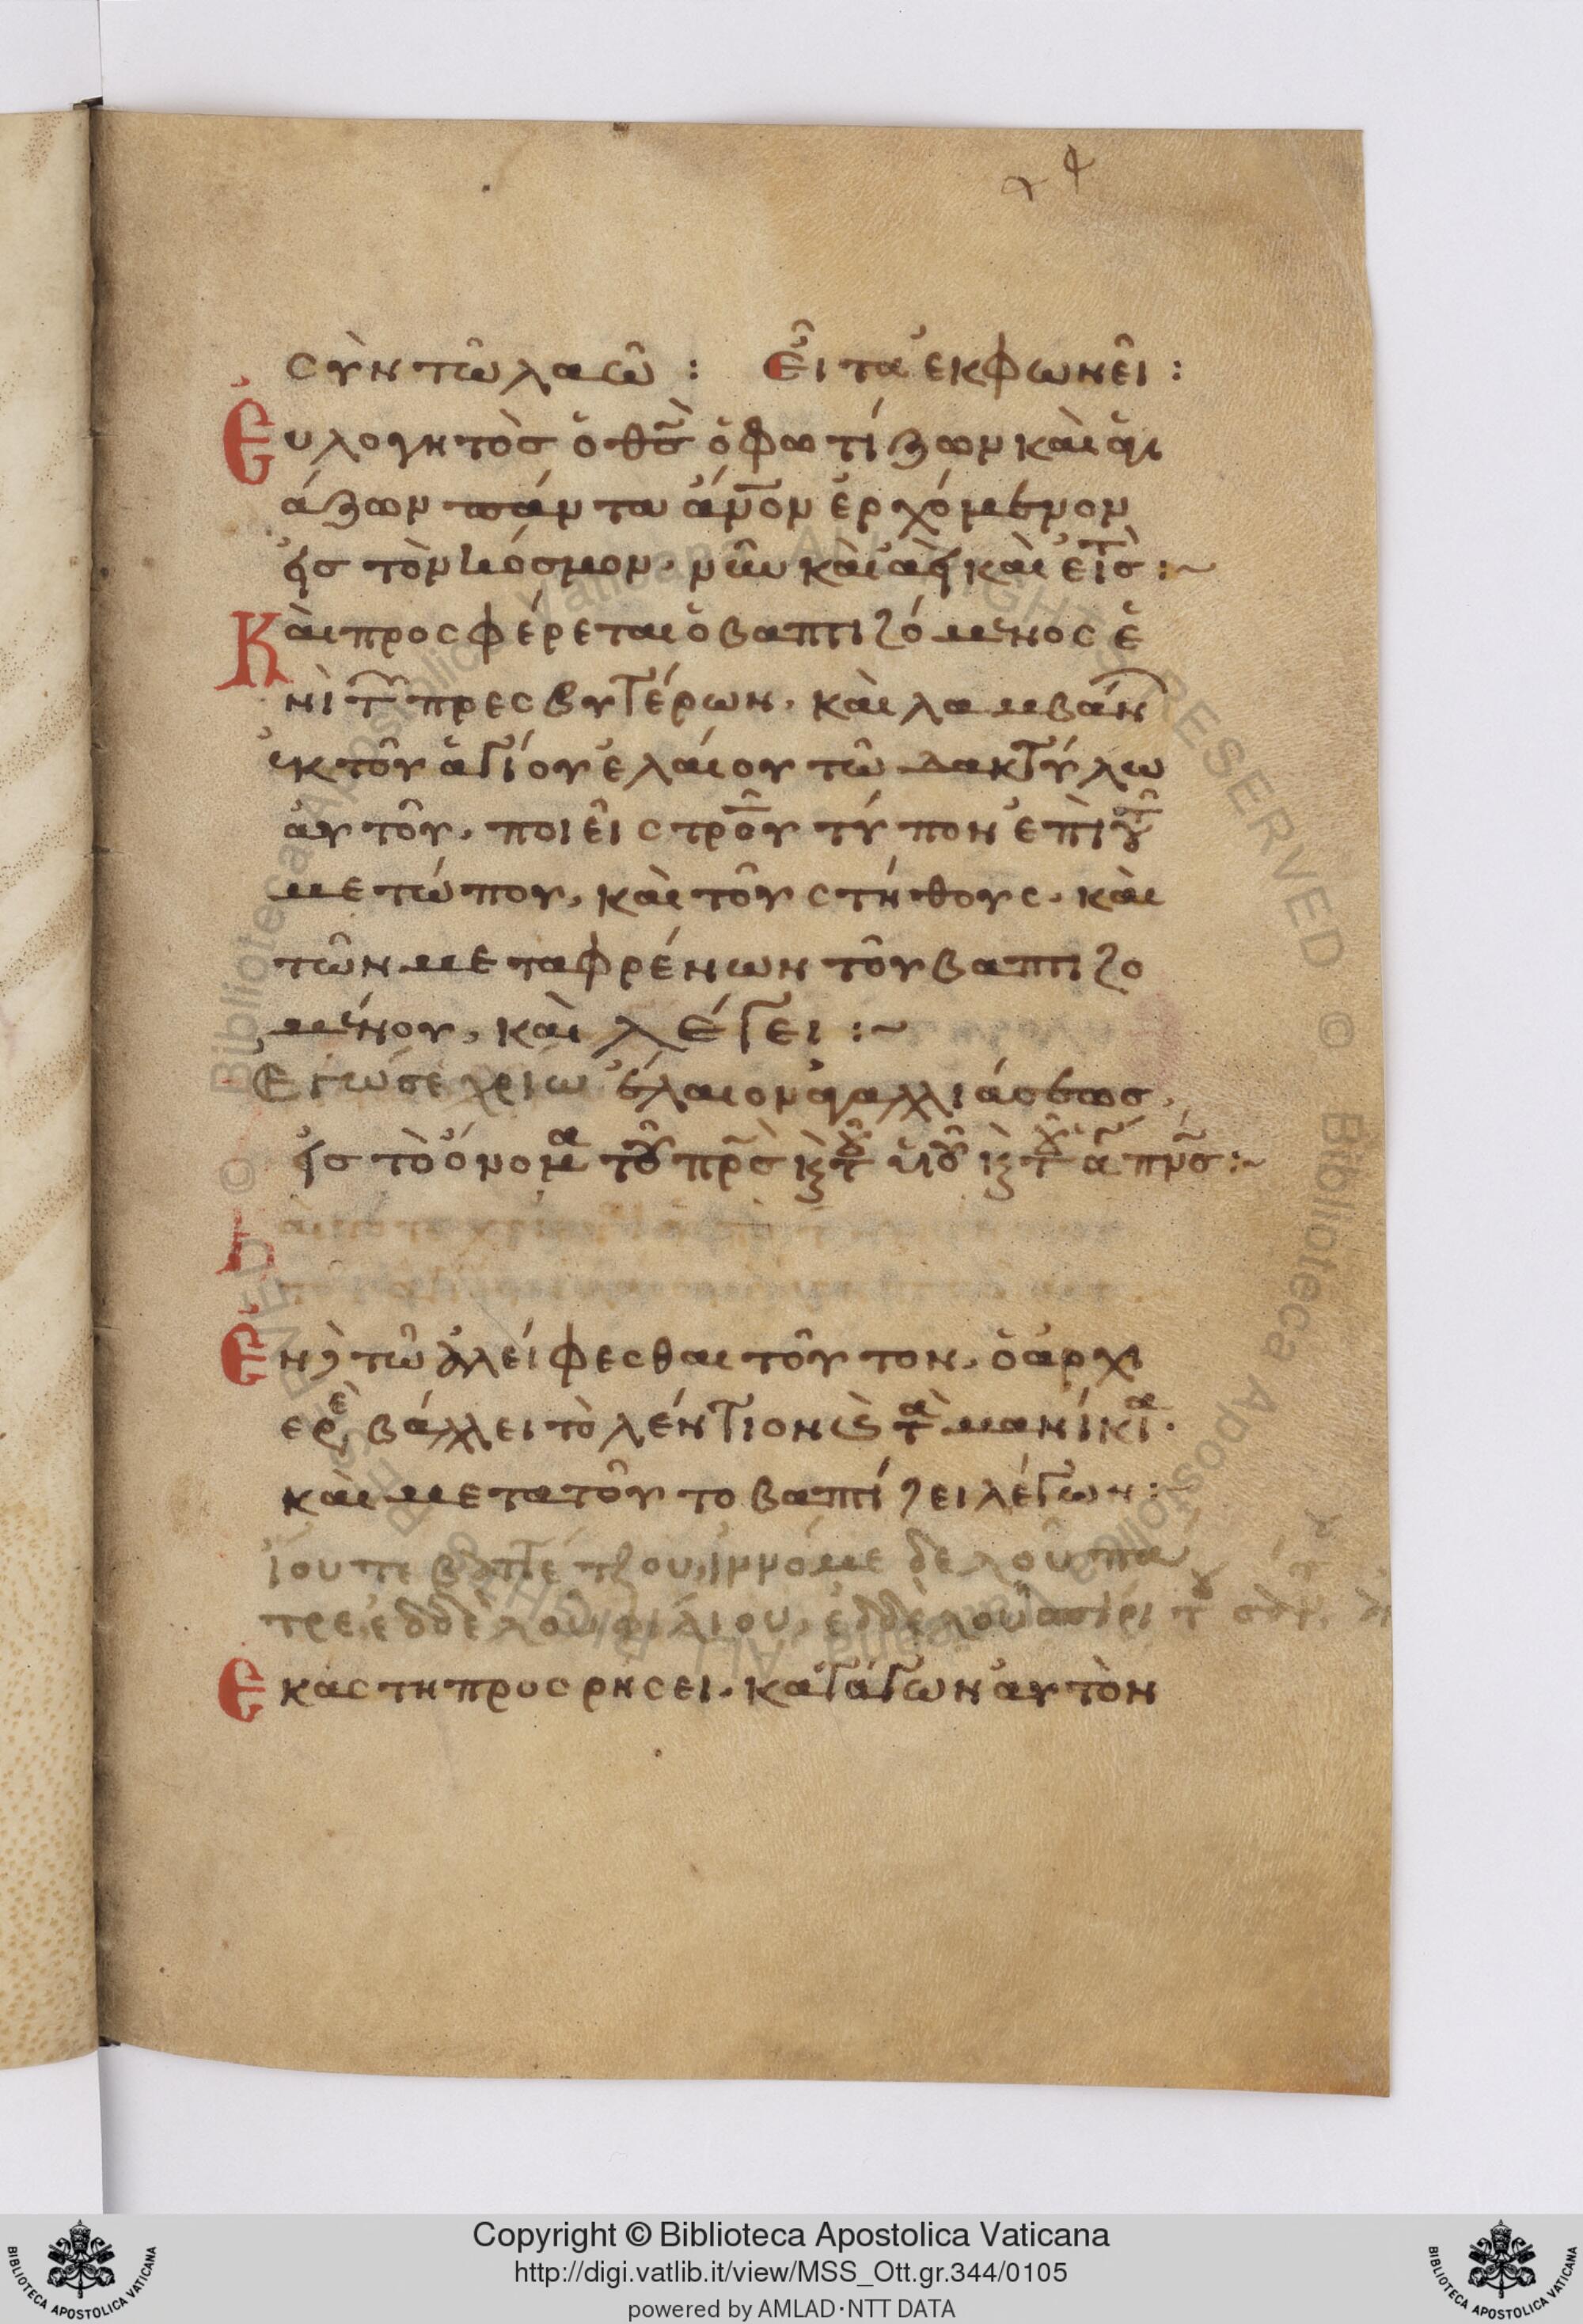 σὺν τῶ λαῶ : Εἶτα ἐκφωνεῖ :
Εὐλογητὸσ ὁ θσ̅ ὁ φωτίζων καὶ ἁγι
άζων πάντα ἄν̅ον ἐρχόμενον
εἰσ τὸν κόσμον· νῦν καὶ ἀεὶ καὶ εἰσ :~
Καὶ προσφέρεται ὁ βαπτιζόμενος ἑ
νὶ τῶν πρεσβυτέρων· καὶ λαμβάν
ἐκ τοῦ ἁγίου ἐλαίου τῶ δακτύλω
αὐτοῦ· ποιεῖ στρο̅υ τύπον ἐπὶ τοῦ
μετώπου· καὶ τοῦ στήθους· καὶ
τῶν μεταφρένων τοῦ βαπτιζο
μένου· καὶ λέγει :~
Εγώ σε χρίω ἔλαιον ἀγαλλιάσεωσ·
εἰσ τὸ ὄνομα τοῦ πρ̅σ κ̀ τοῦ υἱοῦ κ̀ τοῦ ἁ πν̅σ :~
Ἐν τῶ ἀλείφεσθαι τοῦτον· ὁ ἀρχι
ερε βάλλει τὸ λέντιον κ̀ τὰ μανίκια·
καὶ μετα τοῦτο βαπτίζει λέγων :~
ἴου τε βαπτέτζου, ἰννόμε δε λοῦ πά
τρε, ἐδδὲ λοῦ φιλιου, ἐδδὲ λοῦ σπίρι τ
Εκαστη προσρησει· κατάγων αὐτὸν
Copyright © Biblioteca Apostolica Vaticana
http://digi.vatlib.it/view/MSS_Ott.gr.344/0105
powered by AMLAD·NTT DATA
BIBLIOTECA APOSTOLICA VATICANA
BIBLIOTECA APOSTOLICA VATICANA